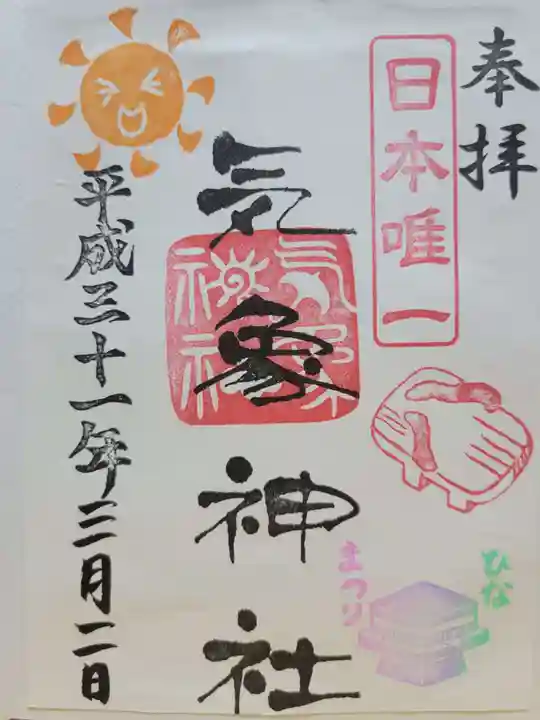 奉拝
日本唯一
気象神社
気象神社
ひな
まつり
平成三十一年三月二日